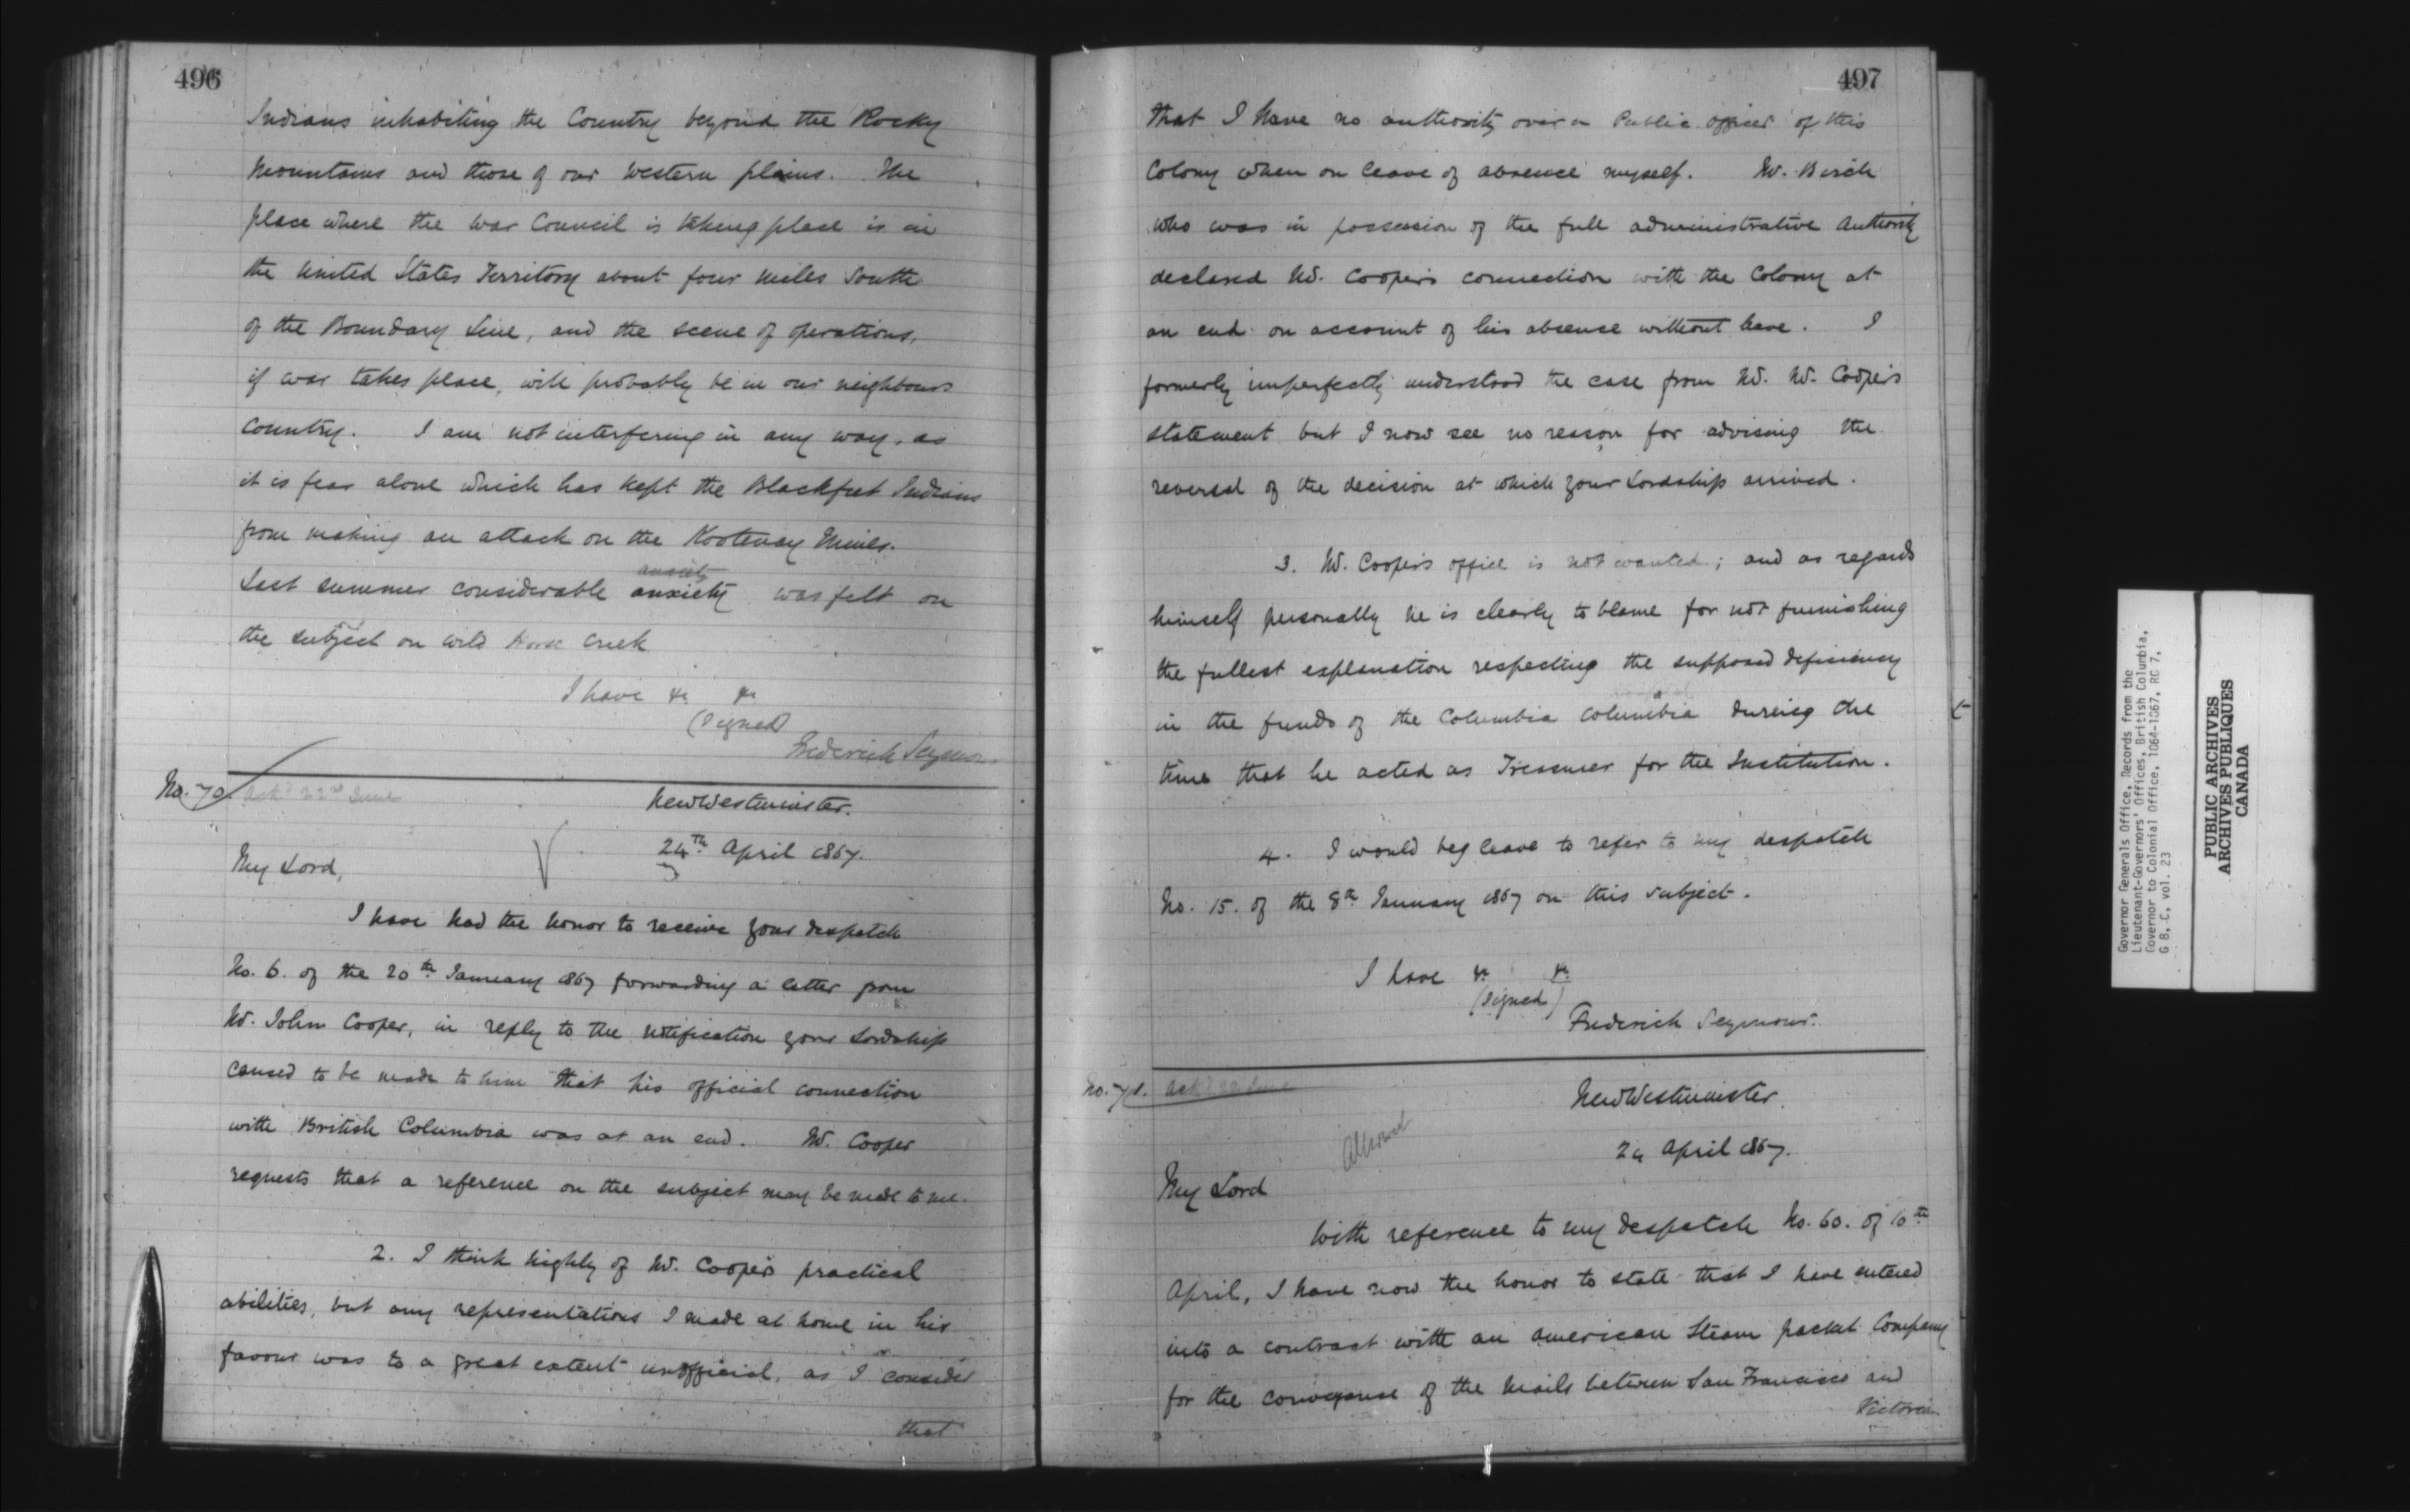 496
Indians inhabiting the Country beyond the Rocky
Mountains and those of our Western plains. The
place where the War Council is taking place is in
the United States Territory about four miles South
of the Boundary Line, and the scene of operations,
if war takes place, will probably be in our neighbours
Country. I am not interfering in any way, as
it is fear alone which has kept the Blackfeet Indians
from making an attack on the Kootenay Mines.
anxiety
Last summer considerable anxiety was felt on
the subject on Wild Horse Creek
I have &c &c
(Signed)
Frederick Seymour
No. 70. Ackd 22nd June
New Westminster.
24th April 1867.
My Lord,
I have had the honor to receive your despatch
No. 6. of the 20th January 1867 forwarding a letter from
Mr. John Cooper, in reply to the notification your Lordship
caused to be made to him that his official connection
with British Columbia was at an end. Mr. Cooper
requests that a reference on the subject may be made to me.
2. I think highly of Mr. Cooper's practical
abilities, but any representations I made at home in his
favour was to a great extent unofficial, as I consider
that
497
that I have no authority over a Public officer of this
Colony when on leave of absence myself. Mr. Birch
who was in possession of the full administrative Authority
declared Mr. Cooper's connection with the Colony at
an end on account of his absence without leave. I
formerly imperfectly understood the case from Mr. Mr. Cooper's
statement but I now see no reason for advising the
reversal of the decision at which your Lordship arrived.
3. Mr. Cooper's office is not wanted; and as regards
himself personally he is clearly to blame for not furnishing
the fullest explanation respecting the supposed deficiency
in the funds of the Columbia Columbia during the
time that he acted as Treasurer for the Institution.
4. I would beg leave to refer to my despatch
No. 15. of the 8th January 1867 on this subject.
I have &c &c
(Signed)
Frederick Seymour.
No. 71. Ackd 22 June
New Westminster.
24 April 1867.
allowed
My Lord
With reference to my despatch No. 60. of 10th
April, I have now the honor to state that I have entered
into a contract with an American Steam packet Company
for the conveyance of the Mails between San Francisco and
Victoria
Governor Generals Office, Records from the
Lieutenant-Governors' Offices, British Columbia,
Governor to Colonial Office, 1864-1867, RG 7,
G 8, C, vol. 23
PUBLIC ARCHIVES
ARCHIVES PUBLIQUES
CANADA